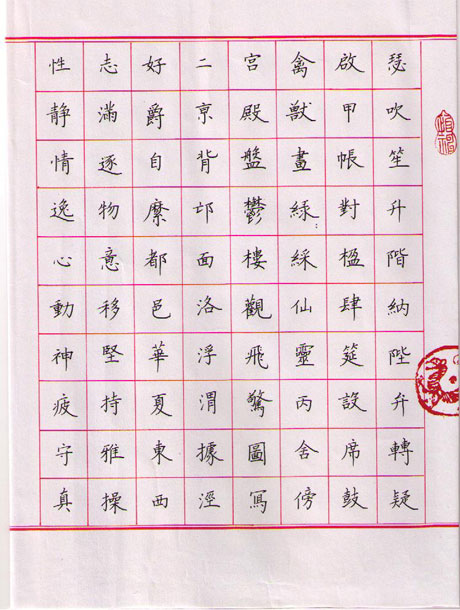 性靜情逸心動神疲守真
志滿逐物意移堅持雅操
好爵自縻都邑華夏東西
二亰背邙面洛浮渭據涇
宮殿盤鬱樓觀飛驚圖寫
禽獸畫綠綵仙靈丙舍傍
啟甲帳對楹肆筵設席鼓
瑟吹笙升階納陛弁轉疑